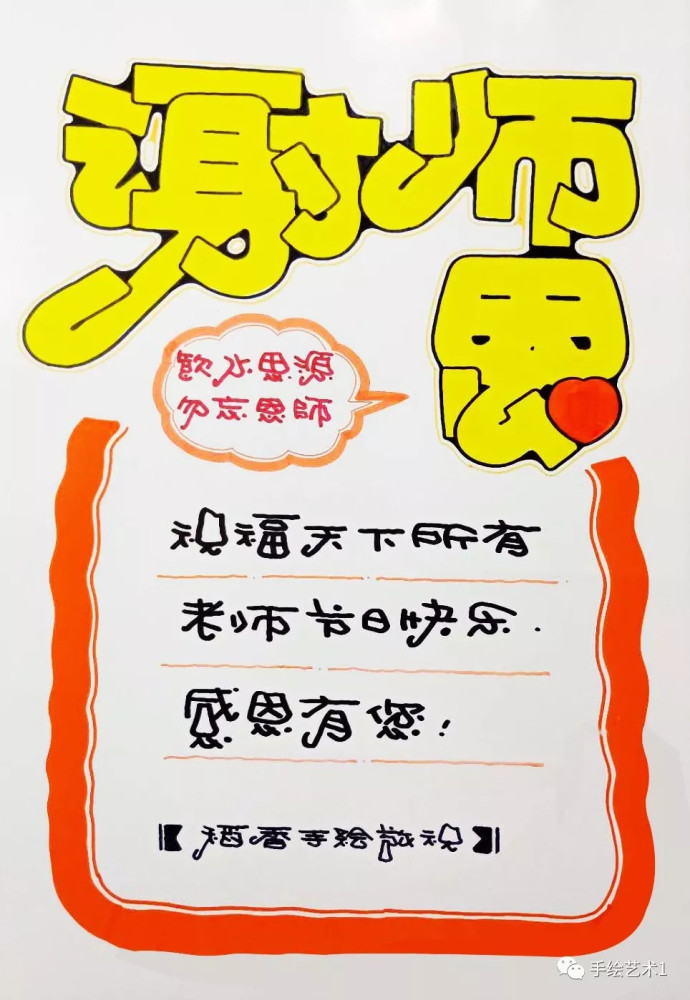 谢师恩
飲水思源
勿忘恩師
祝福天下所有
老师节日快乐.
感恩有您!
【稻香手绘诚祝】
手绘艺术1